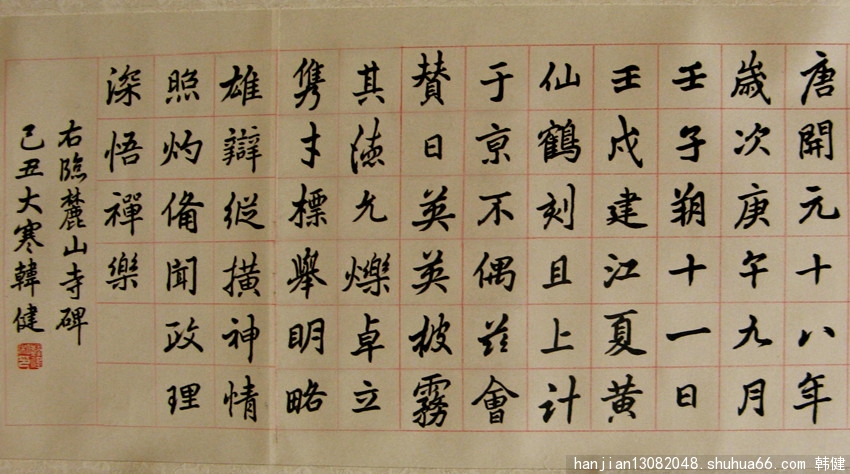 唐開元十八年
歲次庚午九月
壬子朔十一日
壬戌建江夏黃
仙鶴刻且上計
于京不偶茲會
贊曰英英披霧
其德允爍卓立
雋才標舉明略
雄辯縱橫神情
照灼備聞政理
深悟禪樂
右臨麓山寺碑
己丑大寒韓健
hanjian13082048.shuhua66.com 韩健